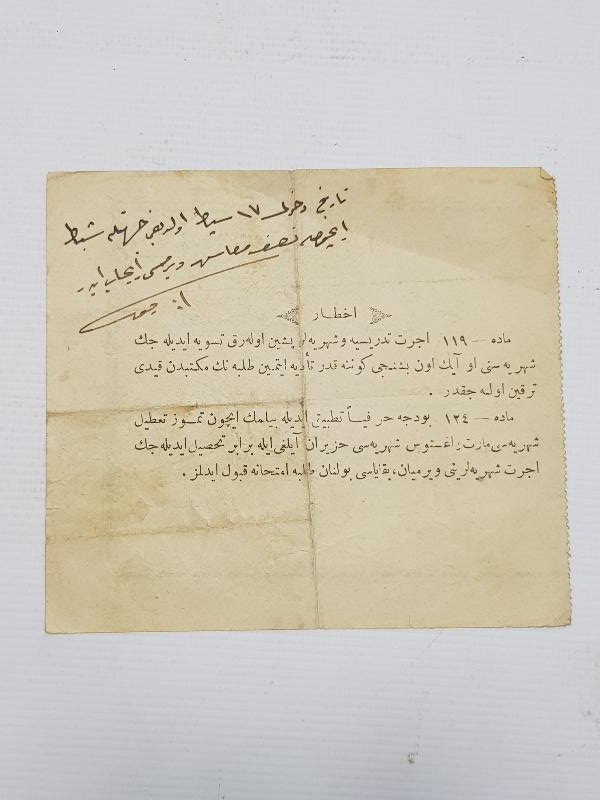 تاریخ دخولی ١٧ شباط اولدیغی جهتله شباط
ایچون نصف معاش ویرمسی ایجاب ایدر
اخطار
ماده — ١١٩ اجرت تدریسیه و شهریه‌لر پشین اوله‌رق تسویه ایدیله جك
شهریه سنی او آیك اون بشنجی كوننه قدر تأدیه ایتمین طلبه نك مكتبدن قیدی
ترقین اولنه جقدر .
ماده — ١٢٤ بودجه حرفیاً تطبیق ایدیله بیلمك ایچون تموز تعطیل
شهریه‌سی مارت، اغستوس شهریه‌سی حزیران آیلغی ایله برابر تحصیل ایدیله جك
اجرت شهریه‌لرینی ویرمیان، بقایاسی بولنان طلبه امتحانه قبول ایدلمز .